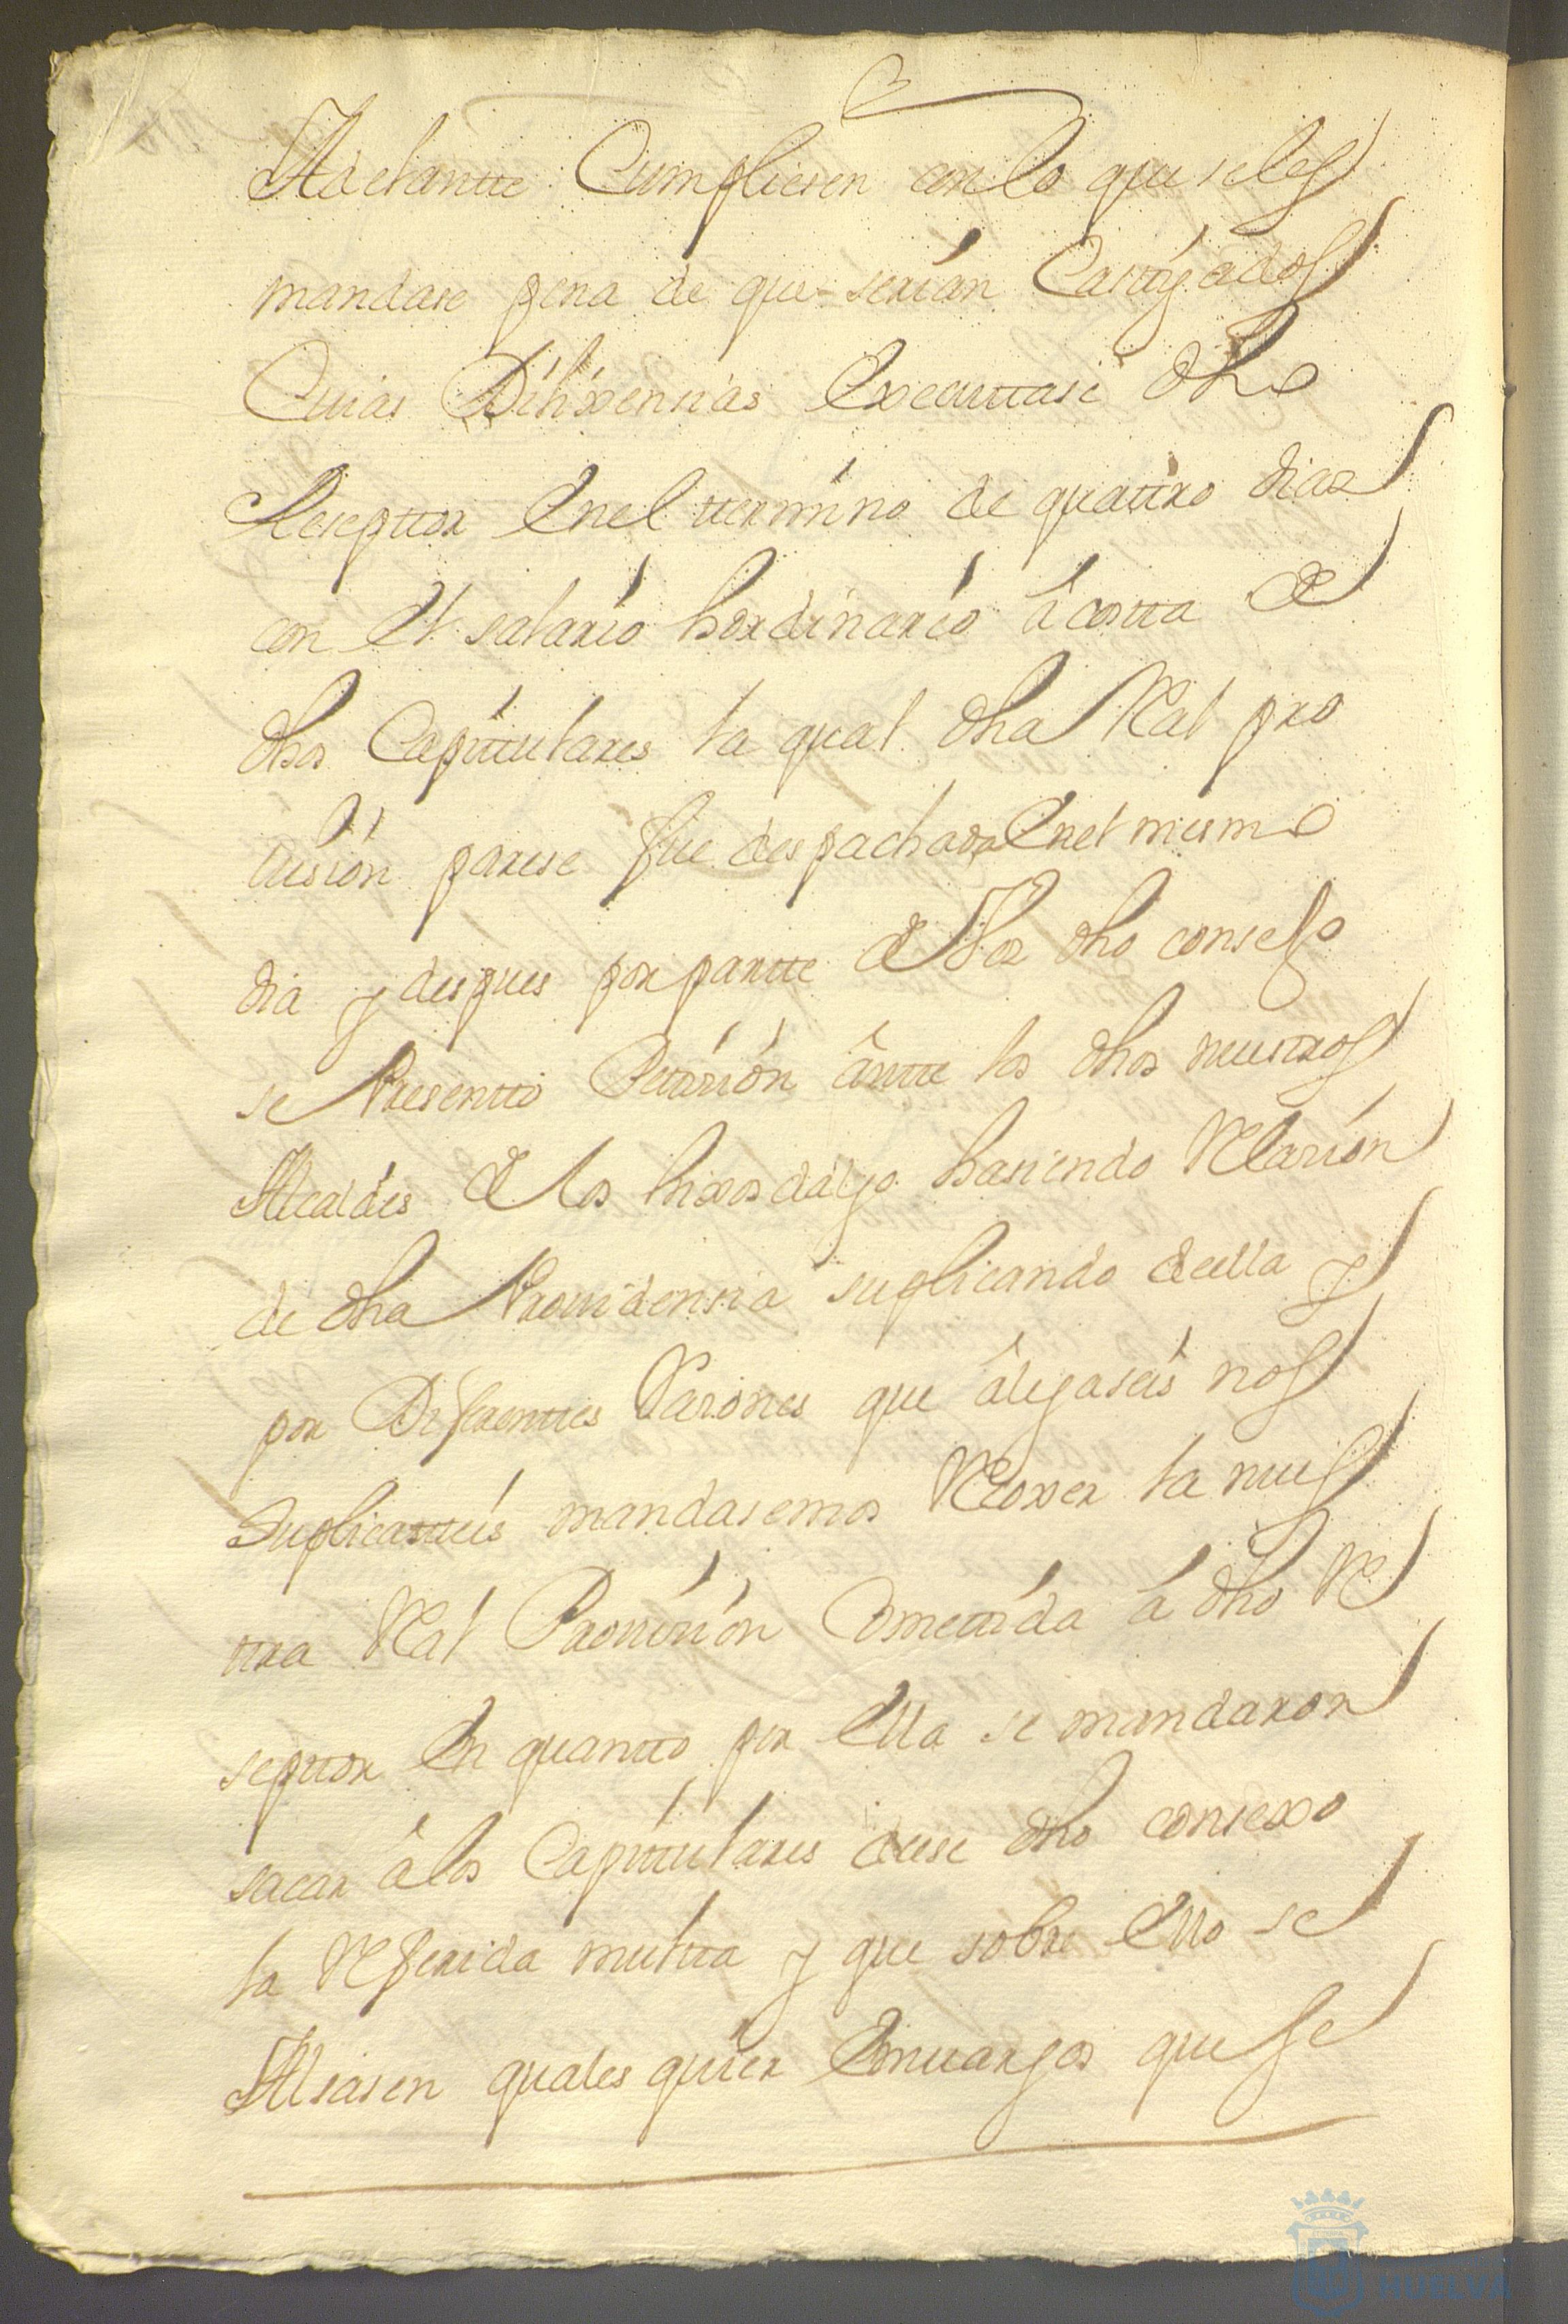 Adelantte Cumpliesen con lo que seles
mandase pena de que serían Castigados
Cuias Dilixensias Executtase dho
Reseptor En el ttermino de quattro dias
con El salario hordinario â costta de
dhos Capittulares la qual dha Real pro
vision parese fue despachada En el mismo
dia y despues por partte de Vos dho consejo
se Presentto Petizión ântte los dhos nuestros
Alcaldes de los hixosdalgo hasiendo Relazión
de dha Providensia suplicando de ella y
por Diferenttes Razones que âlegaseis nos
Suplicastteis mandasemos Recoxer la nues
ttra Real Provizión Comettida â dho Re
septtor En quantto por Ella se mandaron
sacar â los Capittulares de ese dho consexo
la Referida multta y que sobre Ello se
Alsasen quales quier Emvargos que se
HUELVA